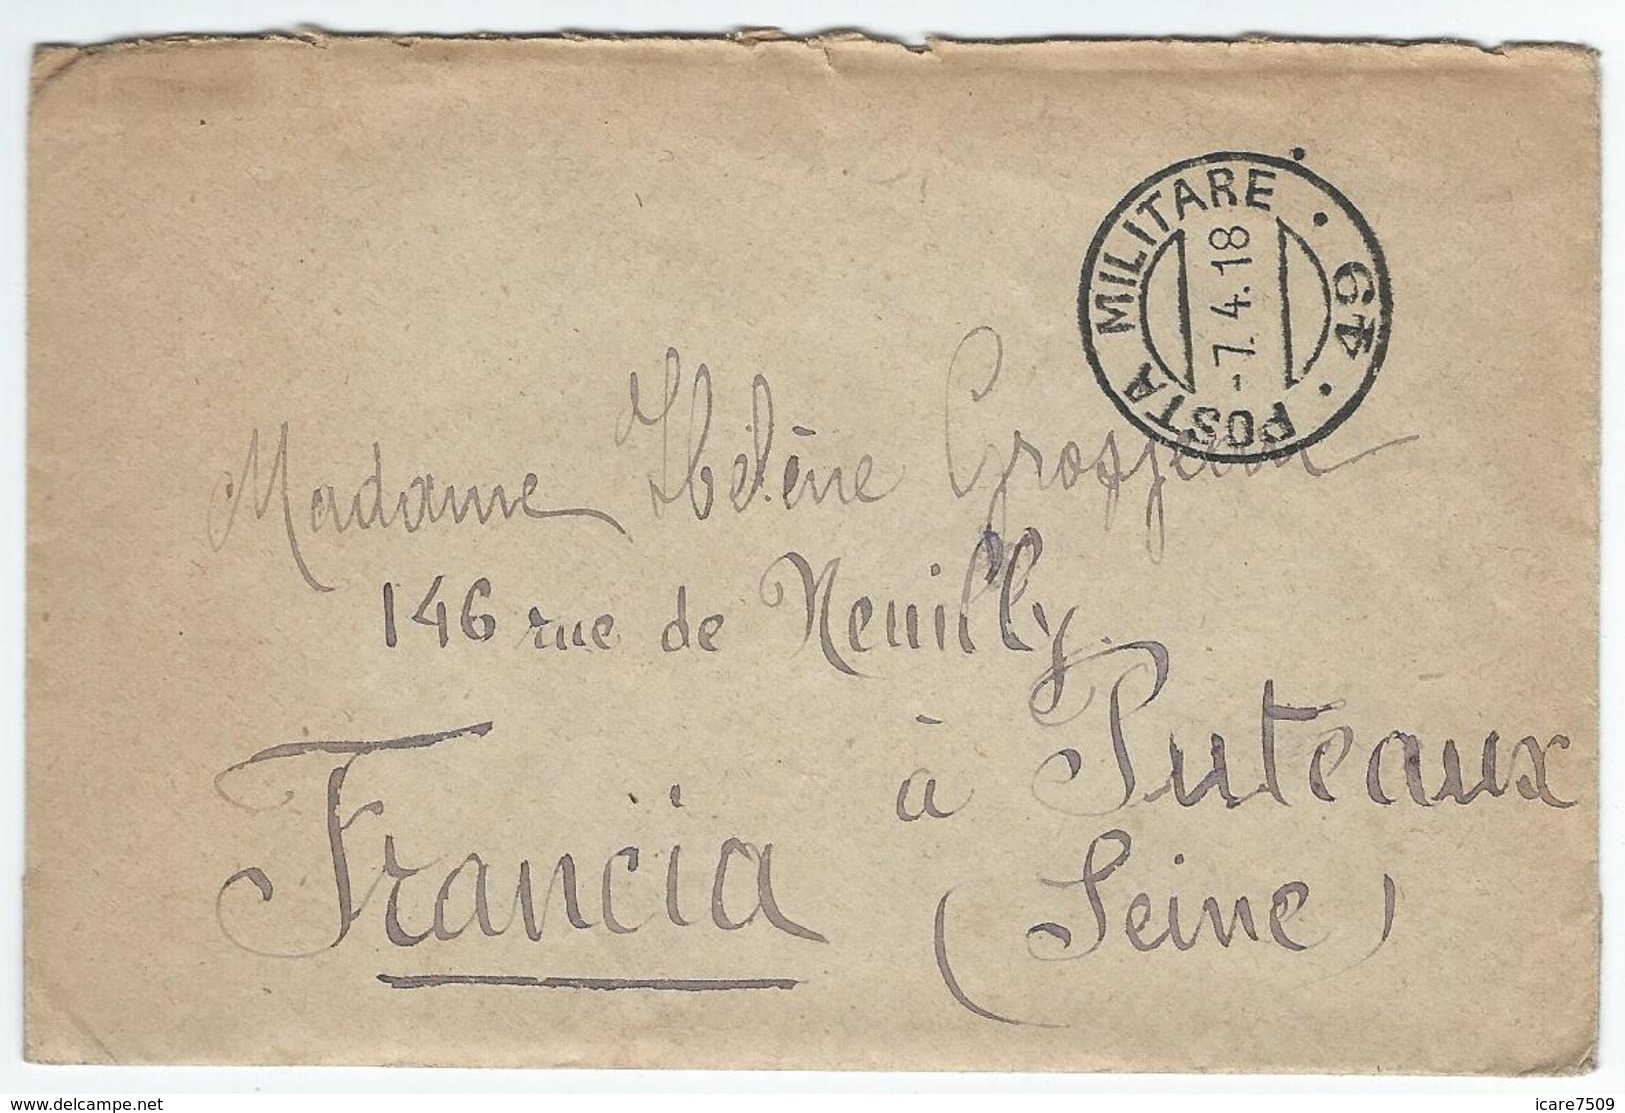 POSTA MILITARE • 49 •
-7. 4. 18
Madame Hélène Grosjean
146 rue de Neuilly
à Puteaux
Francia (Seine)
delcampe.net
icare7509